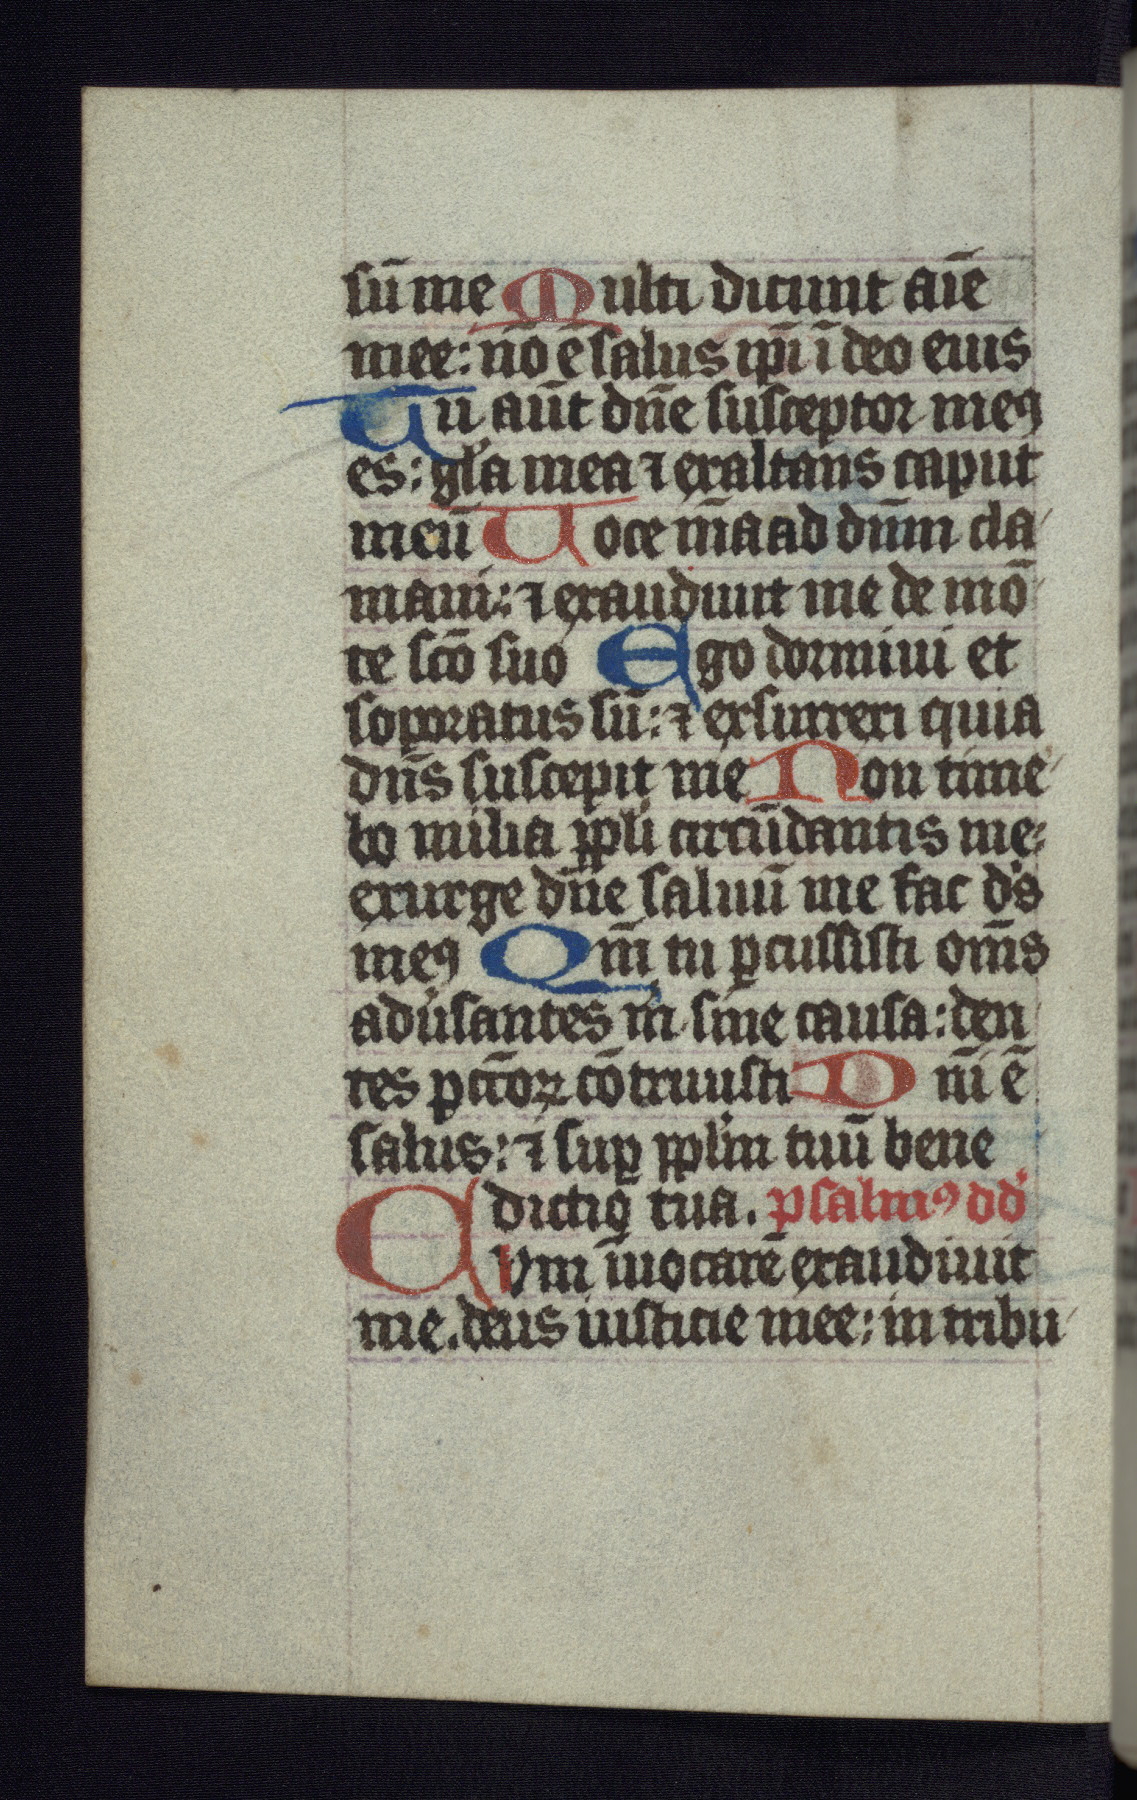 sū me Multi dicunt aīe
mee: nō ē salus ip̄i ī deo eius
Tu aūt dn̄e susceptor meꝯ
es: gl̄a mea ⁊ exaltans caput
meū Uoce m̄a ad dn̄m cla
maui: ⁊ exaudiuit me de mō
te sc̄o suo Ego dormiui et
soporatus sū: ⁊ exsurrexi quia
dn̄s suscepit me Non time
bo milia ppl̄i circūdantis me:
exurge dn̄e saluū me fac ds̄
meꝯ Qm̄ tu ꝑcussisti om̄s
adūsantes m̄ sine causa: den
tes pc̄toꝝ cōtriuisti Dn̄i ē
salus: ⁊ suꝑ ppl̄m tuū bene
dictio tua. psalmꝯ dd̄
Cvm īuocarē exaudiuit
me. deus iusticie mee: in tribu